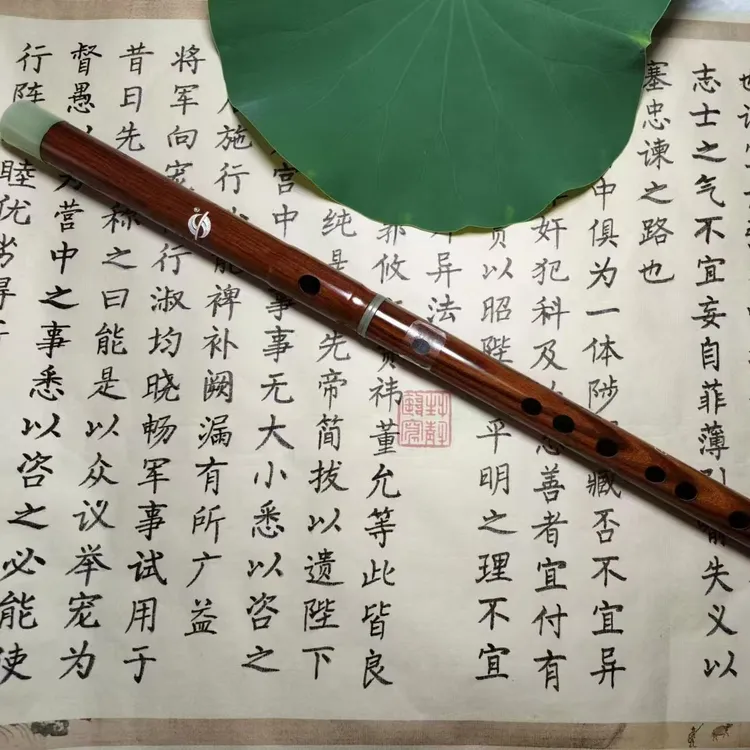 志士之气不宜妄自菲薄失义以
塞忠谏之路也
中俱为一体陟臧否不宜异
奸犯科及忠善者宜付有
以昭陛平明之理不宜
异法
攸祎董允等此皆良
纯是先帝简拔以遗陛下
宫中事事无大小悉以咨之
施行能裨补阙漏有所广益
将军向宠行淑均晓畅军事试用于
昔日先称之曰能是以众议举宠为
督愚以为营中之事悉以咨之必能使
行阵睦优劣得